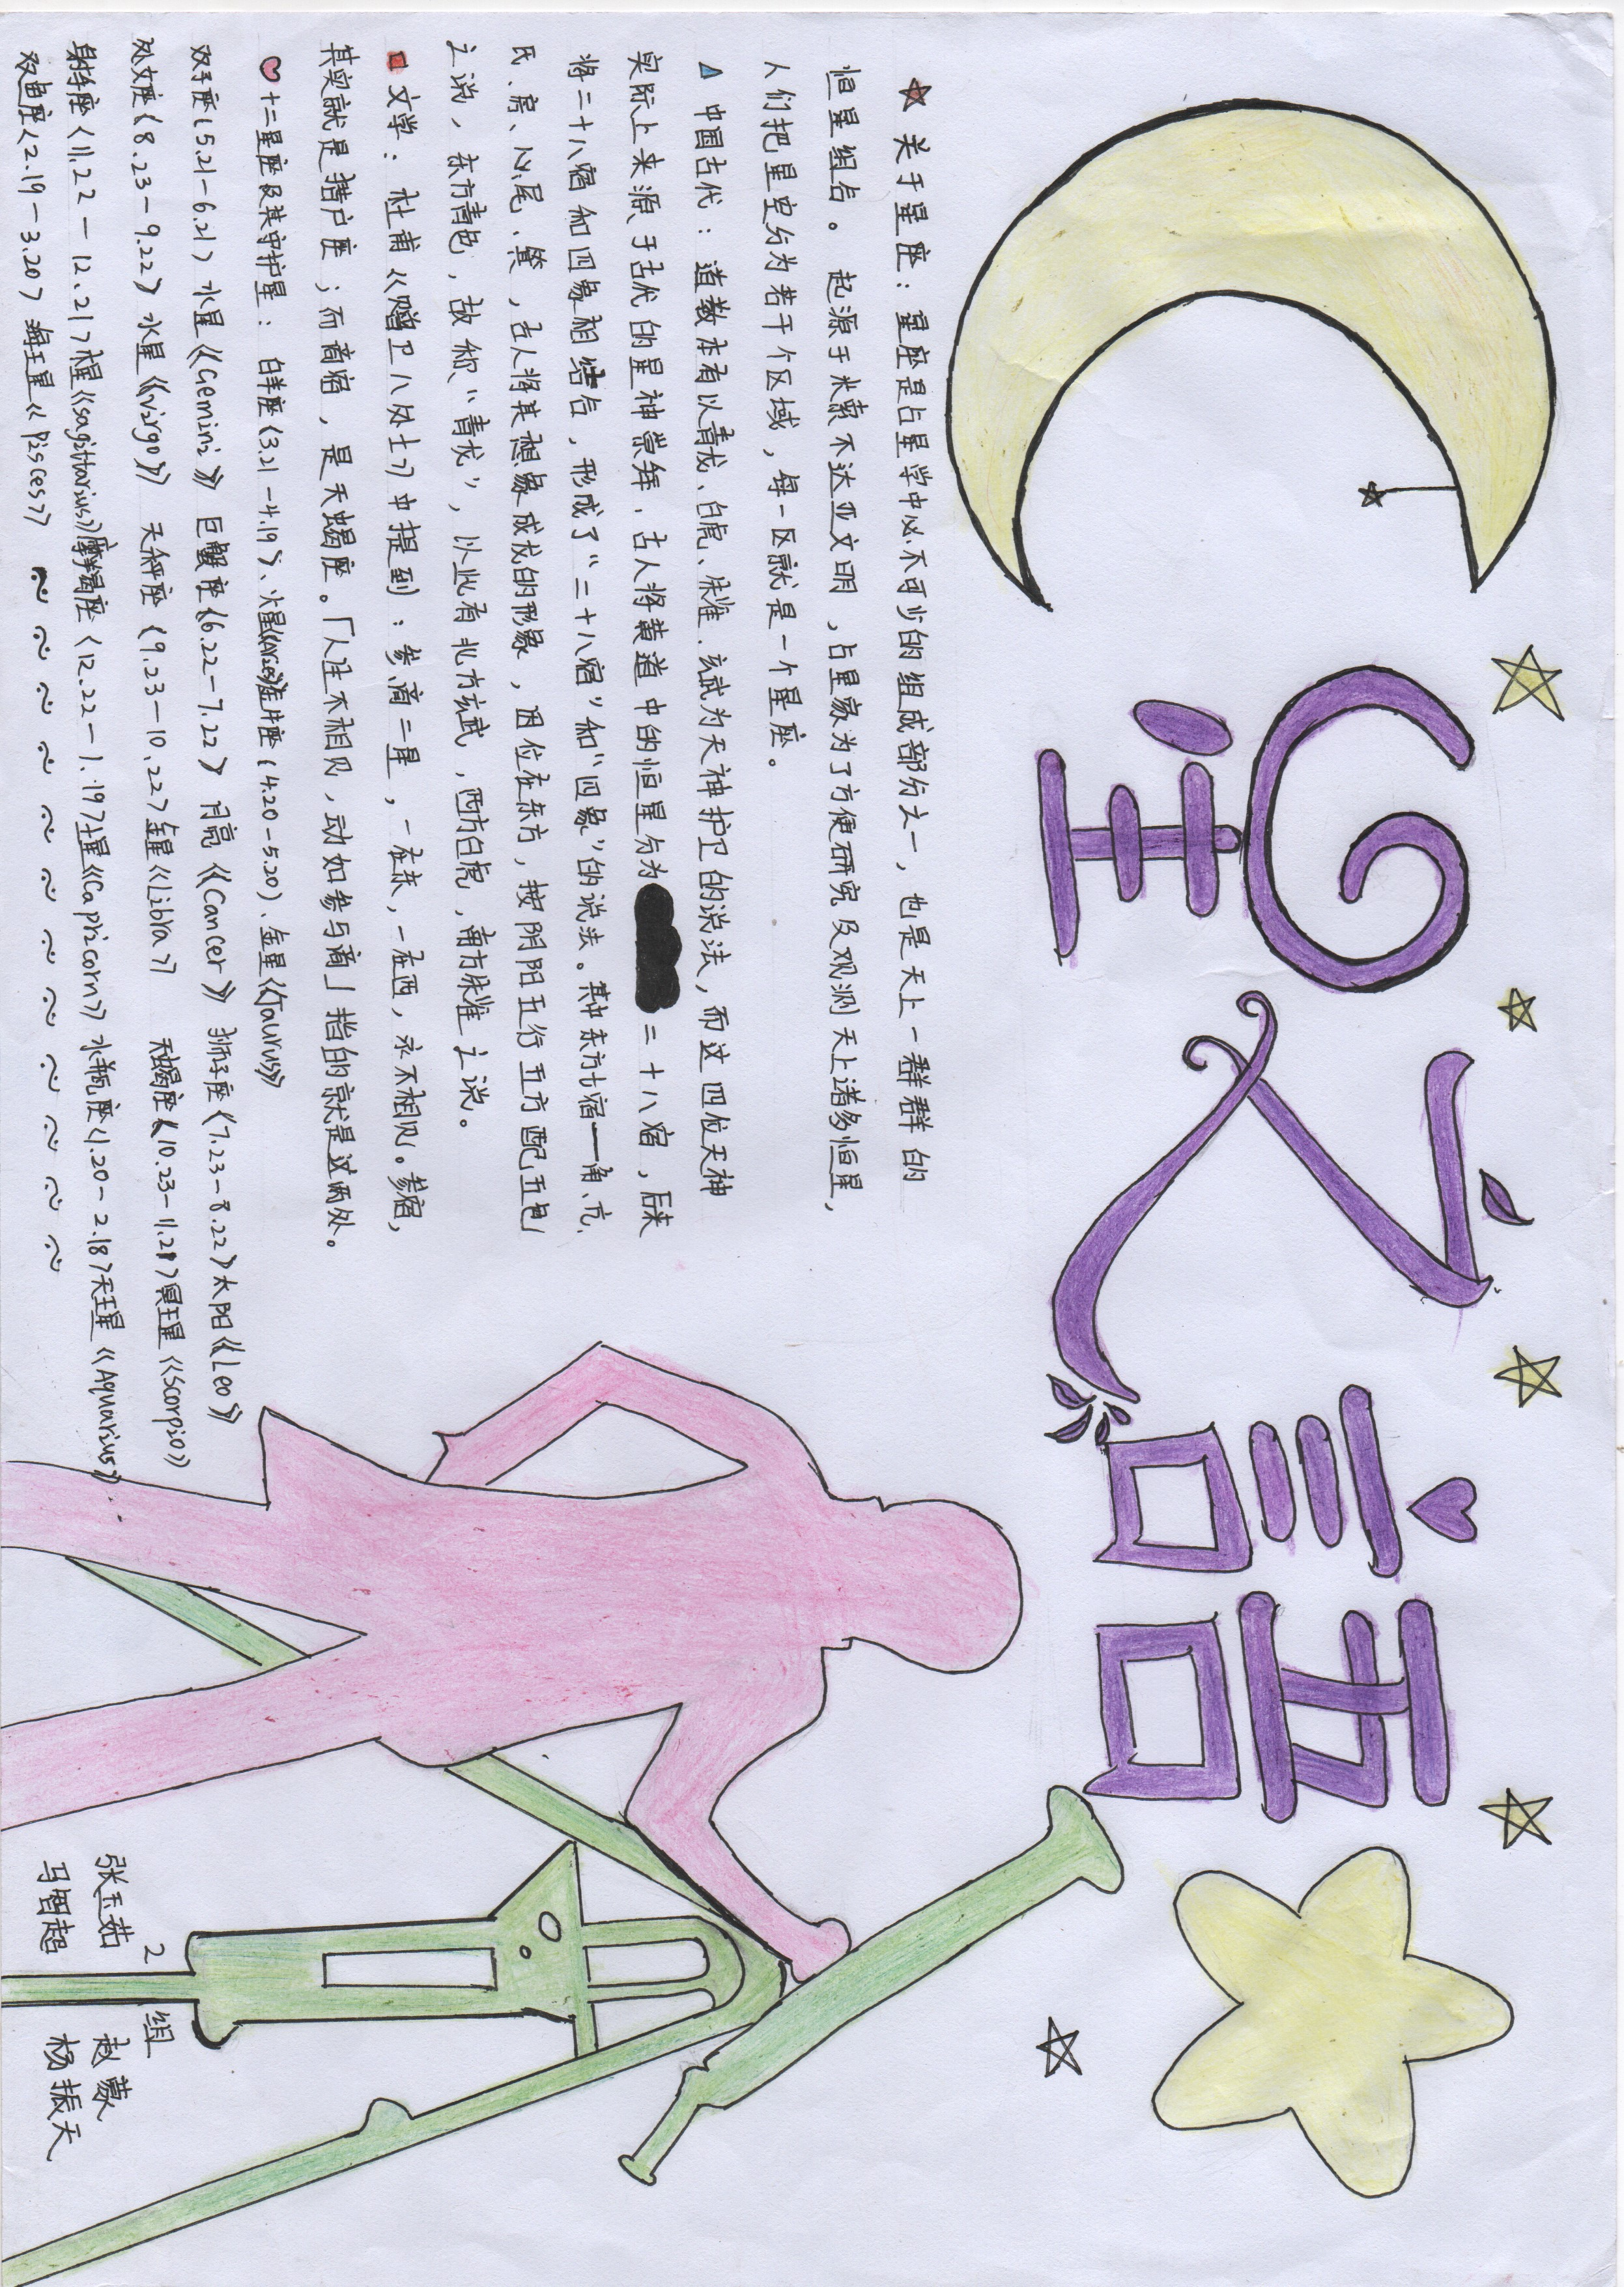 星之語
☆ 关于星座：星座是占星学中必不可少的组成部分之一，也是天上一群群的
恒星组合。起源于米索不达亚文明，占星家为了方便研究及观测天上诸多恒星，
人们把星空分为若干个区域，每一区就是一个星座。
△ 中国古代：道教本有以青龙、白虎、朱雀、玄武为天神护卫的说法，而这四位天神
实际上来源于古代的星神崇拜，古人将黄道中的恒星分为二十八宿，后来
将二十八宿和四象相结合，形成了“二十八宿”和“四象”的说法。其中东方七宿——角、亢、
氐、房、心、尾、箕，古人将其想象成龙的形象，因位在东方，按阴阳五行五方配五色
之说，东方青色，故称“青龙”，以此有北方玄武，西方白虎，南方朱雀之说。
□ 文学：杜甫《赠卫八处士》中提到：参、商二星，一在东，一在西，永不相见。参宿，
其实就是猎户座；而商宿，是天蝎座。「人生不相见，动如参与商」指的就是这两处。
♡ 十二星座及其守护星：白羊座（3.21－4.19）、火星《Aries》金牛座（4.20－5.20）、金星《Taurus》
双子座（5.21－6.21）水星《Gemini》 巨蟹座（6.22－7.22）月亮《Cancer》 狮子座（7.23－8.22）太阳《Leo》
处女座（8.23－9.22）水星《virgo》 天秤座（9.23－10.22）金星《Libra》 天蝎座（10.23－11.21）冥王星《Scorpio》
射手座（11.22－12.21）木星《sagittarius》摩羯座（12.22－1.19）土星《Capricorn》水瓶座（1.20－2.18）天王星《Aquarius》
双鱼座（2.19－3.20）海王星《Pisces》
2 组
张玉茹 赵蒙
马智超 杨振天